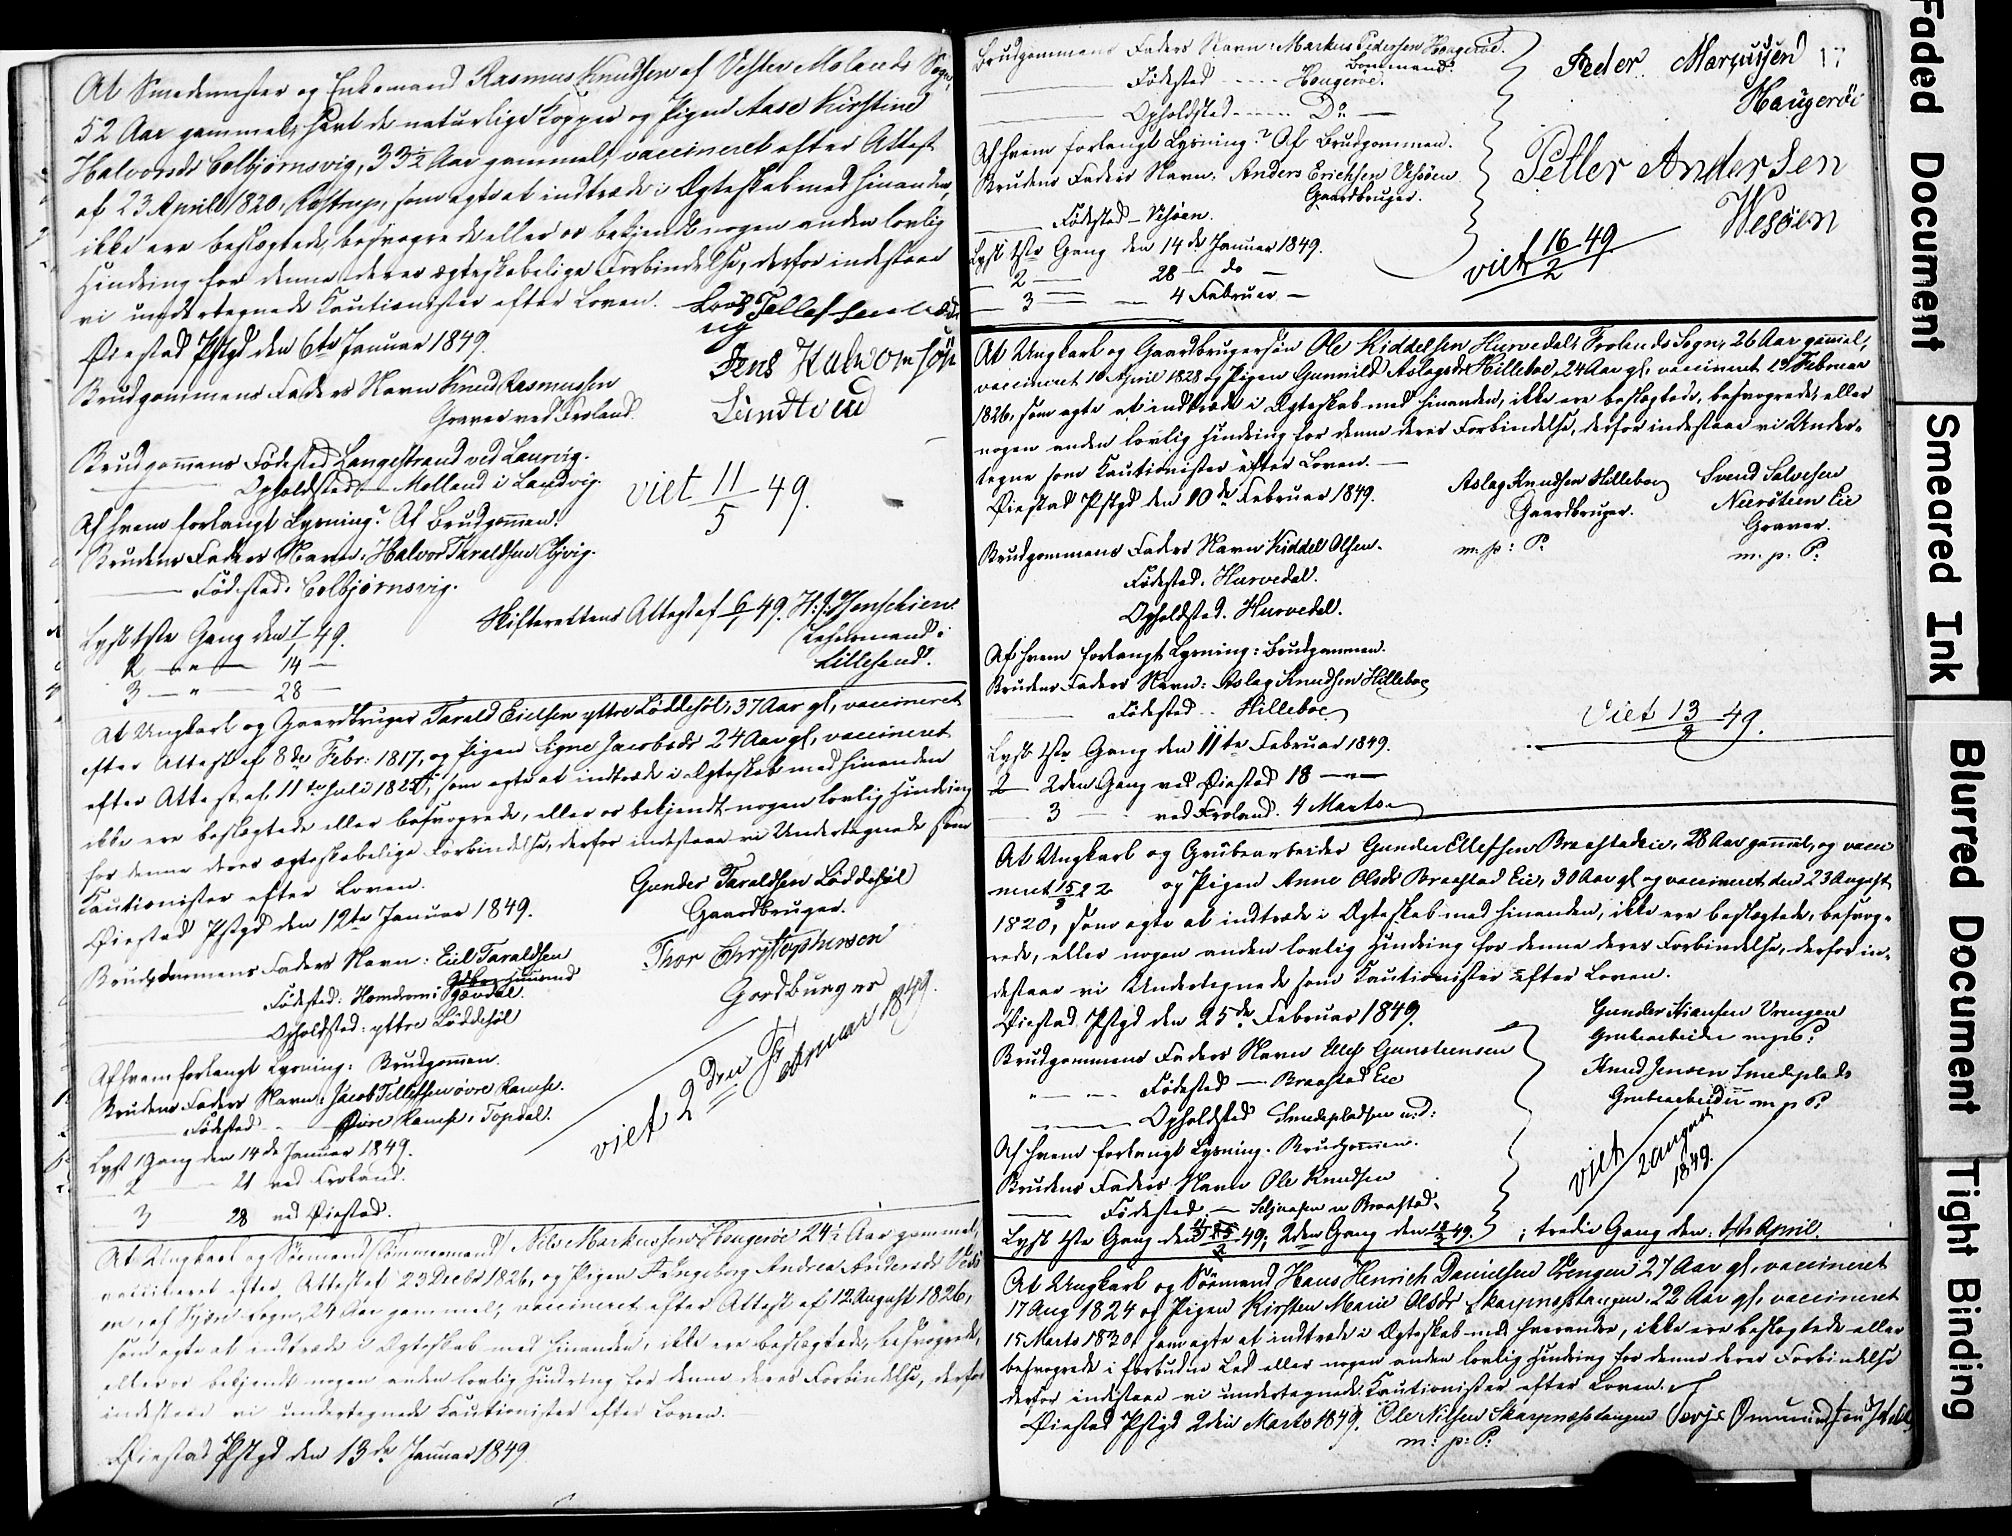 At Smedemester og Enkemand Rasmus Knudsen af Vester Molands Sogn,
52 Aar gammel, havt de naturlige Kopper og Pigen Aase Kirstine
Halvorsdr Colbjørnsvig, 33½ Aar gammel, vaccineret efter Attest
af 23 April 1820, som agte at indtræde i Ægteskab med hinanden,
ikke ere beslægtede, besvogrede eller os bekjendt nogen anden lovlig
Hindring for denne deres ægteskabelige Forbindelse, derfor indestaae
vi undertegnede Kautionister efter Loven.
Øiestad Pstgd den 6te Januar 1849.
Jens Halvorsøn
Brudgommens Faders Navn Knud Rasmussen
Graver ved Froland.
Brudgommens Fødested Langestrand ved Laurvig.
Opholdsted Molland i Landvig.
viet 11/5 49.
Af hvem forlangt Lysning? Af Brudgommen.
Brudens Faders Navn, Halvor Taraldsen
Fødested, Colbjørnsvig.
Skifterettens Attest af 6/1 49. Lehnsmand i
Lillesand.
Lyst 1ste Gang den 7/1 49.
2 — " — 14 —
3 — " — 28 —
At Ungkarl og Gaardbruger Tarald Eielsen yttre Løddesøl, 37 Aar gl, vaccineret
efter Attest af 8de Febr: 1817, og Pigen Signe Jacobsdr 24 Aar gl, vaccineret
efter Attest af 11te Juli, som agte at indtræde i Ægteskab med hinanden
ikke ere beslægtede eller besvogrede, eller os bekjendt nogen lovlig Hindring
for denne deres ægteskabelige Forbindelse, derfor indestaae vi Undertegnede som
Kautionister efter Loven.
Øiestad Pstgd den 12te Januar 1849.
Gunder Taraldsen Løddesøl
Gaardbruger.
Thor Christophersen
Gordburger
Brudgommens Faders Navn: Eiel Taraldsen
Fødested:
Opholdsted: yttre Løddesøl
viet 2den Februar 1849.
Af hvem forlangt Lysning: Brudgommen.
Brudens Faders Navn: Jacob Tellefsen øvre Ramse.
Fødested — Øvre Ramse i Topdal.
Lyst 1 Gang den 14de Januar 1849.
2 — 21 ved Froland.
3 — 28 ved Øiestad.
At Ungkarl og Sømand Tømmermand Nils Markussen Haugerøe 24½ Aar gammel,
vaccineret efter Attest af 23 Decbr 1826, og Pigen Ingeborg Andrea Andersdr
af Sogn, 24 Aar gammel, vaccineret efter Attest af 12 August 1826,
som agte at indtræde i Ægteskab med hinanden, ikke ere beslægtede, besvogrede,
eller os bekjendt nogen anden lovlig Hindring for denne deres Forbindelse, derfor
indestaae vi undertegnede Kautionister efter Loven.
Øiestad Pstgd den 13de Januar 1849
Brudgommens Faders Navn: Markus Pedersen Haugerøe.
Fødested — Haugerøe.
Opholdsted — Do —
Peder Marcussen
Haugerøi
Af hvem forlangt Lysning? Af Brudgommen.
Brudens Faders Navn: Anders Erichsen Vesøen
Gaardbruger.
Fødested — Vesøen.
Petter Andersen
Wesøen
Lyst 1ste Gang den 14de Januar 1849.
2 — 28 — do —
3 — 4 Februar —
viet 16/2 49
At Ungkarl og Gaardbrugersøn Ole Kiddelsen Hurvedal, Frolands Sogn, 26 Aar gammel,
vaccineret 10 April 1828 og Pigen Gunnild Aslagsdr Hilleboe, 24 Aar gl, vaccineret 19 Februar
1826, som agte at indtræde i Ægteskab med hinanden, ikke ere beslægtede, besvogrede, eller
nogen anden lovlig Hindring for denne deres Forbindelse, derfor indestaae vi Under-
tegne som Kautionister efter Loven. —
Øiestad Pstgd den 10de Februar 1849.
Aslag Knudsen Hilleboe
Gaardbruger.
m. p: P:
Svend Salvesen
Neersteen Eie
Graver.
m. p: P:
Brudgommens Faders Navn Kiddel Olsen.
Fødested, Hurvedal.
Opholdsted, Hurvedal.
Af hvem forlangt Lysning: Brudgommen.
Brudens Faders Navn: Aslag Knudsen Hilleboe
Fødested — Hilleboe
Viet 13/3 49.
Lyst 1ste Gang den 11te Februar 1849.
2den Gang ved Øiestad 18 — " —
3 — ved Froland. 4 Marts
At Ungkarl og Grubearbeider Gunder Ellefsen Braastadeie, 28 Aar gammel, og vacci
neret og Pigen Anne Olsdr Braastad Eie, 30 Aar gl og vaccineret den 23 August
1820, som agte at indtræde i Ægteskab med hinanden, ikke ere beslægtede, besvog-
rede, eller nogen anden lovlig Hindring for denne deres Forbindelse, derfor in-
destaae vi Undertegnede som Kautionister efter Loven.
Øiestad Pstgd den 25de Februar 1849.
Gunder Hansen Vrengen
Grubearbeider m. p: P:
Knud Jensen Smedplads
Grubearbeider m p P:
Brudgommens Faders Navn Ellef Gunsteensen
Fødested — Braastad Eie
Opholdsted Smedepladsen
Af hvem forlangt Lysning. Brudgommen.
Brudens Faders Navn Ole Knudsen
Fødested — Braastad.
viet 2 august 1849.
Lyst 1ste Gang den 49; 2den Gang den 49. ; tredie Gang den 1ste April.
At Ungkarl og Sømand Hans Henrich Danielsen Vrengen 27 Aar gl, vaccineret
17 Aug 1824 og Pigen Kirsten Marie Olsdr Skarpnæstangen, 22 Aar gl, vaccineret
15 Marts 1830, som agte at indtræde i Ægteskab med hverandre, ikke ere beslægtede eller
besvogrede i forbudne Led eller nogen anden lovlig Hindring for denne deres Forbindelse
derfor indestaae vi undertegnede Kautionister efter Loven.
Øiestad Pstgd 2den Marts 1849. Ole Nilsen Skarpnæstangen
m: p: P:
Faded Document
Smeared Ink
Blurred Document
Tight Binding